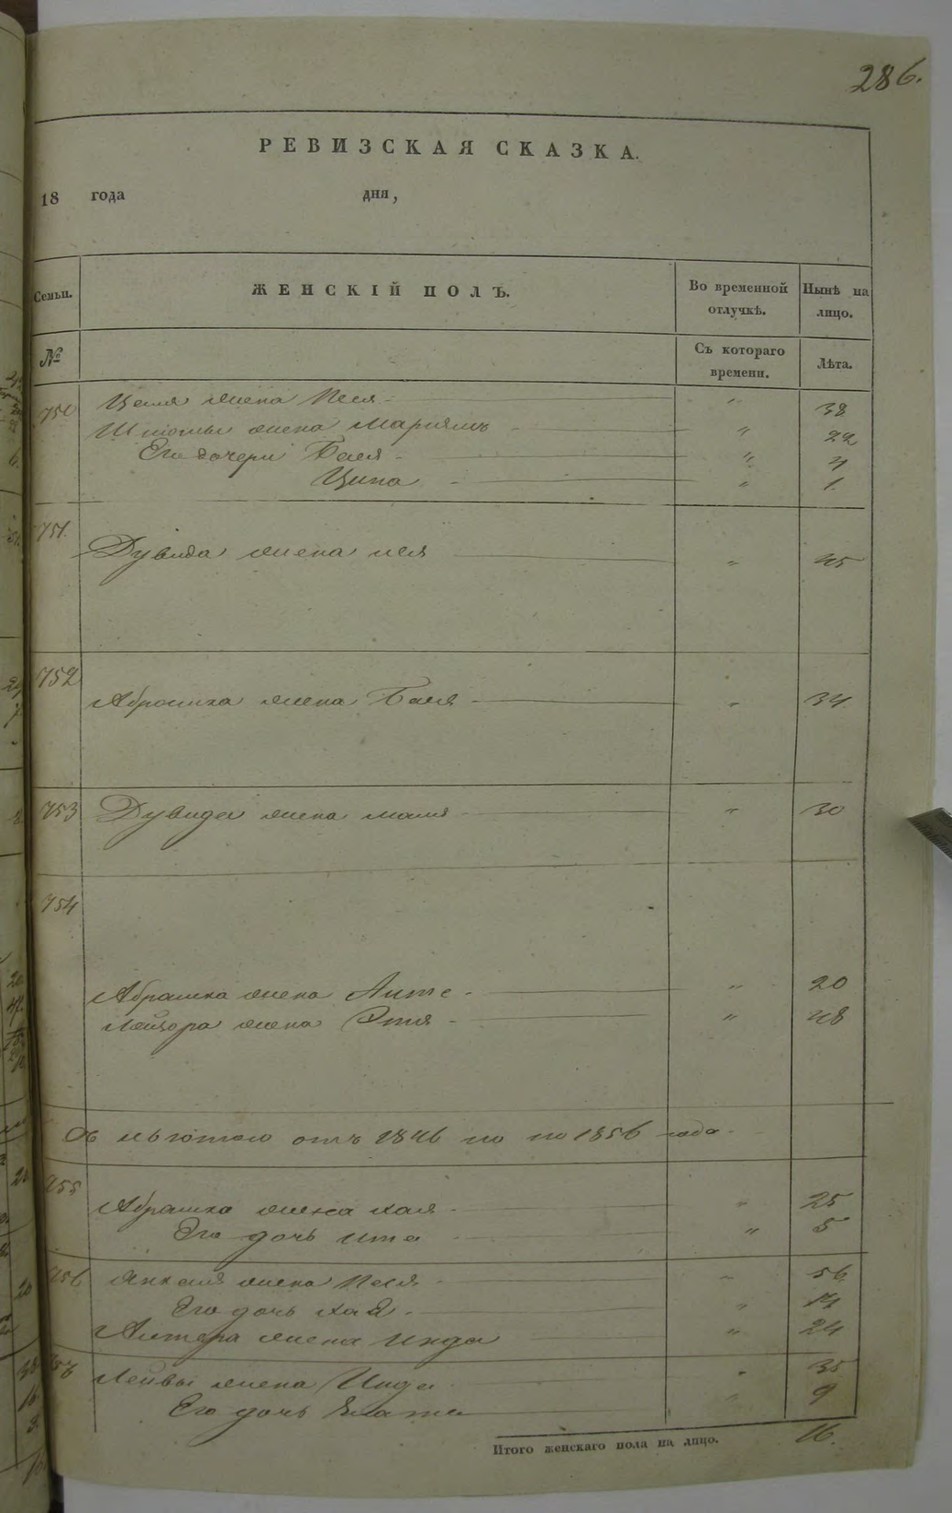 286.
РЕВИЗСКАЯ СКАЗКА.
18 года дня,
Семьи. ЖЕНСКІЙ ПОЛЪ. Во временной отлучкѣ. Нынѣ на лицо.
№ Съ котораго времени. Лѣта.
750 жена Песя " 38
жена Маріямъ " 22
Его дочери Бася " 4
Ципа " 1
751.
Дувида жена " 45
752
Аброшка жена Бася " 34
753 Дувида жена " 30
754
Абрашка жена " 20
Лейзора жена Этя " 48
отъ 1846 по 1856 года
755
Абрашка жена Хая " 25
Его дочь Ита " 5
756 Янкеля жена Песя " 56
Его дочь Хая " 14
Алтера жена Инда " 24
757 Лейбы жена " 35
Его дочь Злата " 9
Итого женскаго пола на лицо. 16.